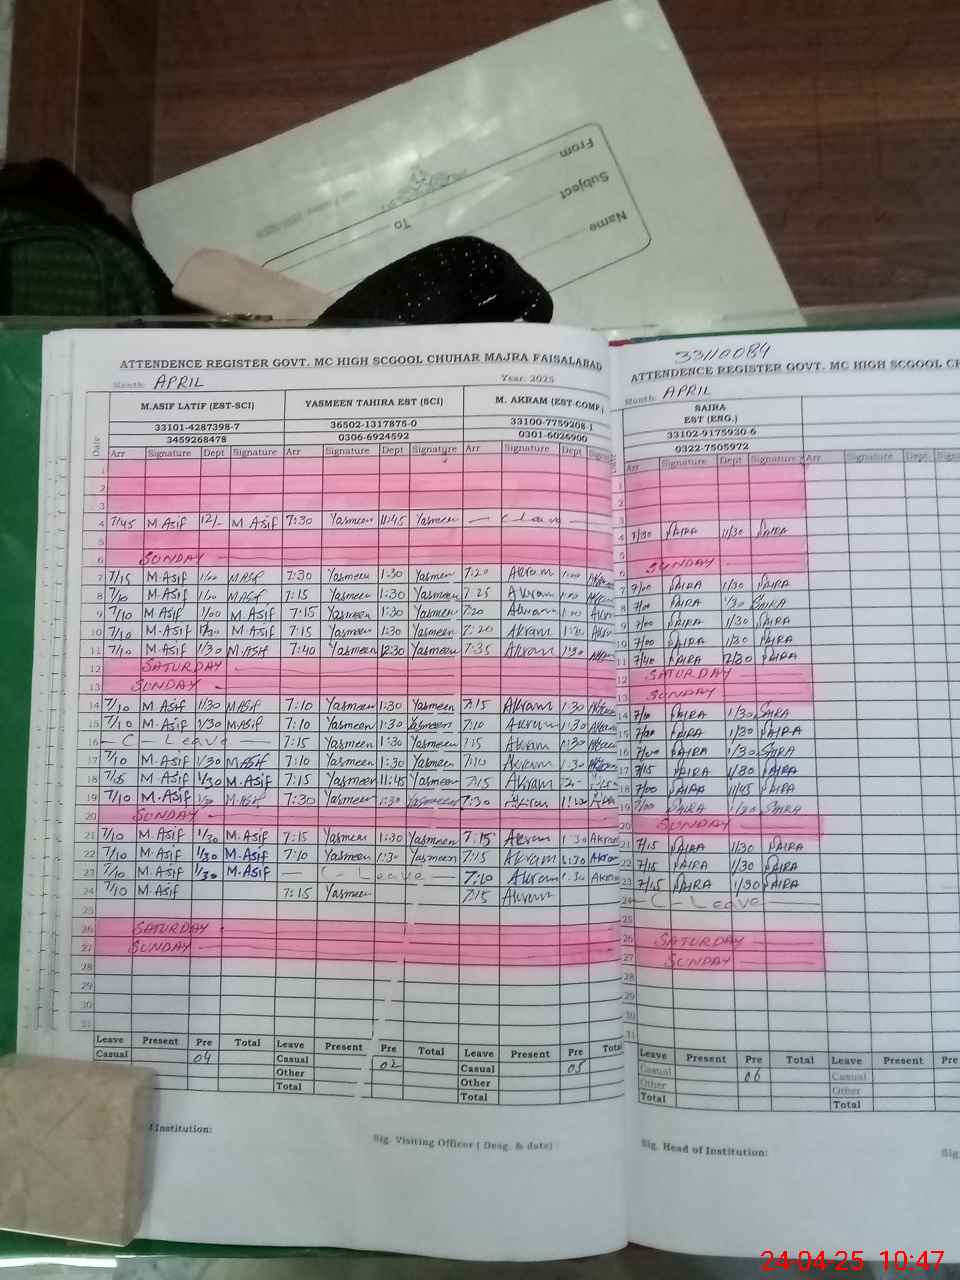 From
Subject
To
Name
ATTENDENCE REGISTER GOVT. MC HIGH SCGOOL CHUHAR MAJRA FAISALABAD
Month: APRIL Year. 2025
M.ASIF LATIF (EST-SCI) YASMEEN TAHIRA EST (SCI) M. AKRAM (EST-COMP)
33101-4287398-7 36502-1317875-0 33100-7759208-1
3459268478 0306-6924592 0301-6026900
Date Arr Signature Dept Signature Arr Signature Dept Signature Arr Signature Dept
1
2
3
4 7/45 M Asif 12/- M Asif 7:30 Yasmeen 11:45 Yasmeen — C Leave —
5
6 SUNDAY
7 7/15 M.Asif M Asif 7:30 Yasmeen 1:30 Yasmeen 7:20 Akram
8 7/10 M.Asif M Asif 7:15 Yasmeen 1:30 Yasmeen 7:25 Akram
9 7/10 M.Asif 1/00 M.Asif 7:15 Yasmeen 1:30 Yasmeen 7:20 Akram
10 7/10 M.Asif M.Asif 7:15 Yasmeen 1:30 Yasmeen 7:20 Akram
11 7/10 M.Asif 1/30 M.Asif 7:40 Yasmeen 12:30 Yasmeen 7:35 Akram
12 SATURDAY
13 SUNDAY
14 7/10 M.Asif 1/30 M Asif 7:10 Yasmeen 1:30 Yasmeen 7:15 Akram 1:30
15 7/10 M.Asif 1/30 M Asif 7:10 Yasmeen 1:30 Yasmeen 7:10 Akram 1:30
16 — C — Leave — 7:15 Yasmeen 1:30 Yasmeen Akram 1:30
17 7/10 M.Asif 1/30 M.Asif 7:10 Yasmeen 1:30 Yasmeen 7:10 Akram 1:30
18 M.Asif 1/30 M.Asif 7:15 Yasmeen 11:45 Yasmeen 7:15 Akram
19 7/10 M.Asif M.Asif 7:30 Yasmeen 1:30 Yasmeen 7:30
20 SUNDAY
21 7/10 M.Asif 1/30 M.Asif 7:15 Yasmeen 1:30 Yasmeen 7:15 Akram 1:30 Akram
22 7/10 M.Asif 1/30 M.Asif 7:10 Yasmeen 1:30 Yasmeen 7:15 Akram
23 7/10 M.Asif 1/30 M.Asif — C - Leave — 7:10 Akram 1:30
24 7/10 M.Asif 7:15 Yasmeen 7:15 Akram
25
26 SATURDAY
27 SUNDAY
28
29
30
31
Leave Present Pre Total Leave Present Pre Total Leave Present Pre Total
Casual 04 Casual 02 Casual 05
Other Other
Total Total
Institution:
Sig. Visiting Officer ( Desg. & date)
33110084
ATTENDENCE REGISTER GOVT. MC HIGH SCGOOL
Month: APRIL
SAIRA
EST (ENG.)
33102-9175930-6
0322-7505972
Arr Signature Dept Signature Arr Signature Dept.
1
2
3
4 7/30 SAIRA 11/30 SAIRA
5
6 SUNDAY
7 7/00 SAIRA 1/30 SAIRA
8 7/00 SAIRA 1/30 SAIRA
9 7/00 SAIRA 1/30 SAIRA
10 7/00 SAIRA 1/30 SAIRA
11 7/40 SAIRA SAIRA
12 SATURDAY
13 SUNDAY
14 7/10 SAIRA 1/30 SAIRA
15 7/00 SAIRA 1/30 SAIRA
16 7/00 SAIRA 1/30 SAIRA
17 7/15 SAIRA 1/30 SAIRA
18 7/00 SAIRA 11/45 SAIRA
19 7/00 SAIRA 1/30 SAIRA
20 SUNDAY
21 7/15 SAIRA 1/30 SAIRA
22 7/15 SAIRA 1/30 SAIRA
23 7/15 SAIRA 1/30 SAIRA
24 — C - Leave —
25
26 SATURDAY
27 SUNDAY
28
29
30
31
Leave Present Pre Total Leave Present Pre
Casual 06 Casual
Other Other
Total Total
Sig. Head of Institution: Sig.
24-04-25 10:47